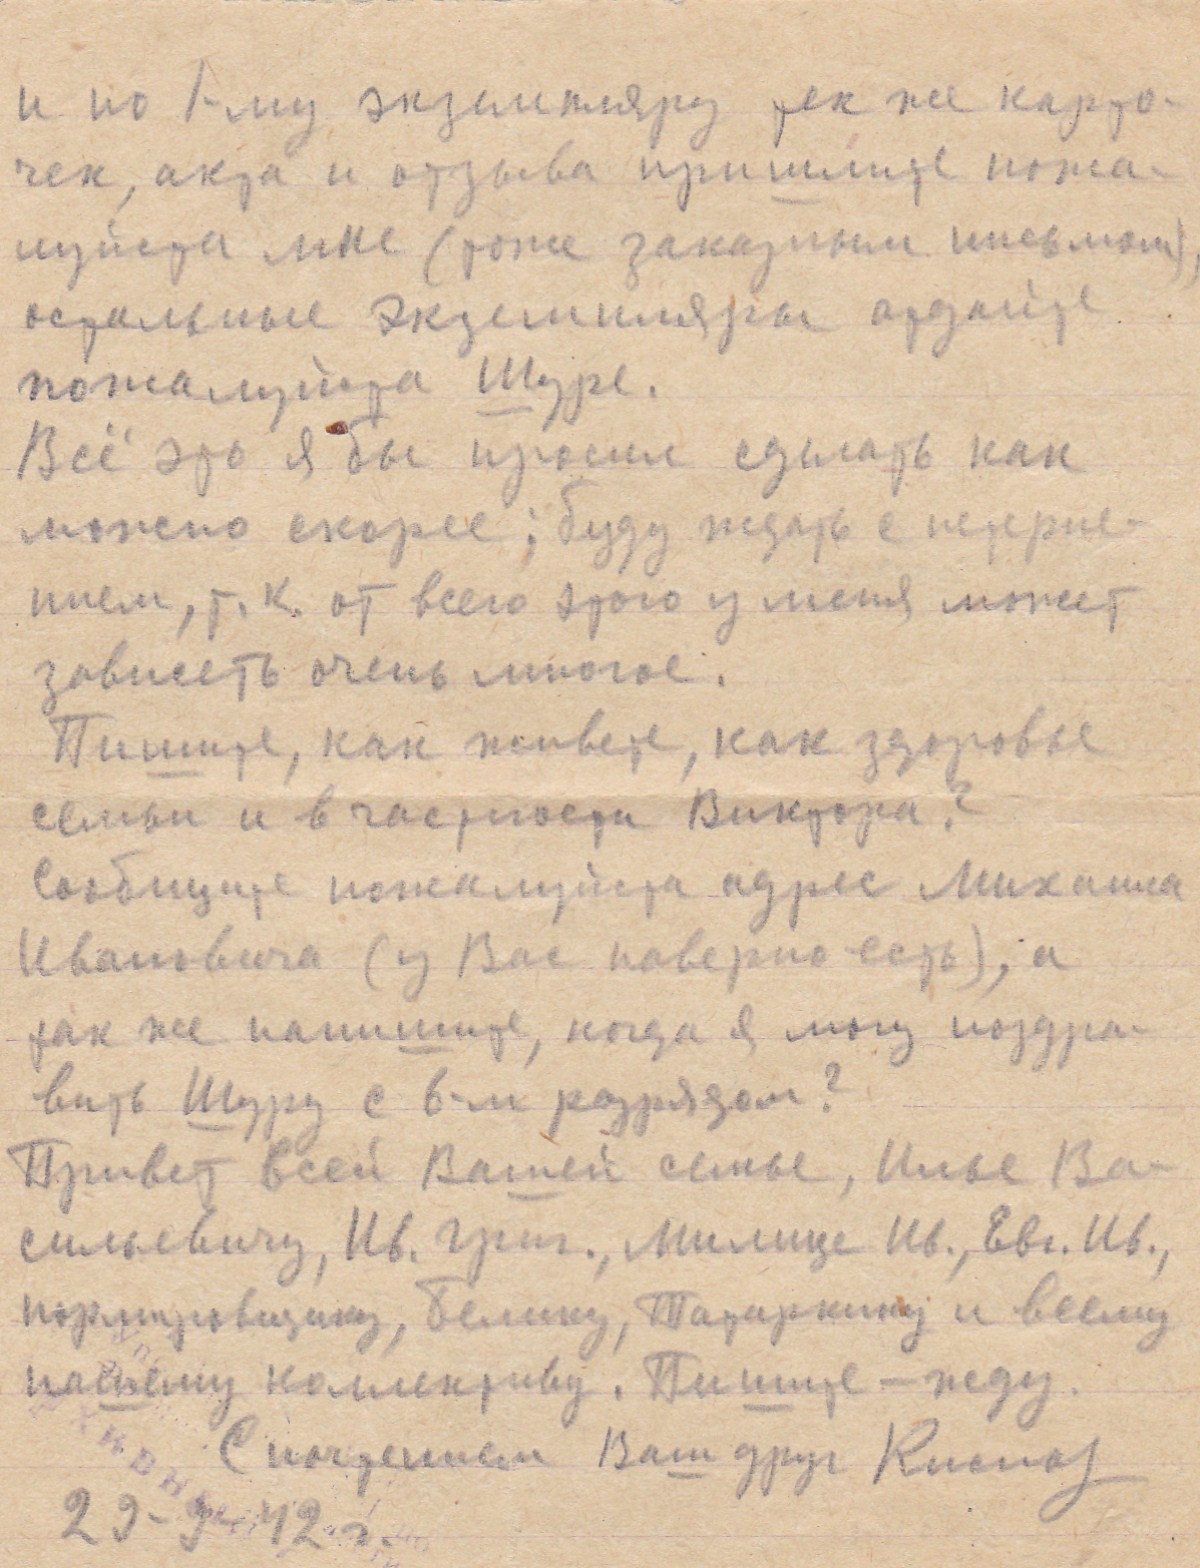 и по 1-му экземпляру тех же карто-
чек, акта и отзыва пришлите пожа-
луйста мне (тоже заказным письмом),
остальные экземпляры отдайте
пожалуйста Шуре.
Всё это я бы просил сделать как
можно скорее; буду ждать с нетерпе-
нием, т.к. от всего этого у меня может
зависеть очень многое.
Пишите, как живете, как здоровье
семьи и в частности Виктора?
Сообщите пожалуйста адрес Михаила
Ивановича (у Вас наверно есть), а
так же напишите, когда я могу поздра-
вить Шуру с 6-м разрядом?
Привет всей Вашей семье, Илье Ва-
сильевичу, Ив. Григ., Милице Ив., Евг. Ив.,
нормировщику, Белику, Татаркину и всему
нашему коллективу. Пишите – жду.
С почтением Ваш друг
42 г.